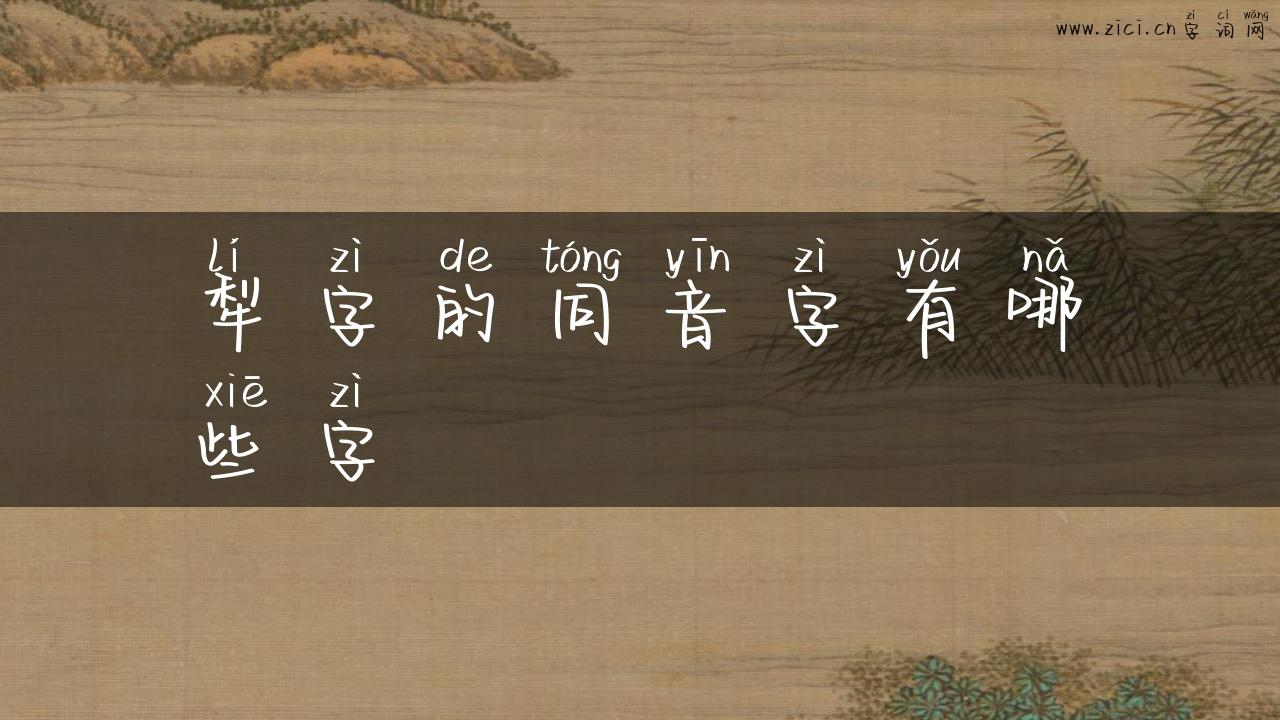 zì cí wǎng
www.zici.cn 字 词 网
lí zì de tóng yīn zì yǒu nǎ
犁 字 的 同 音 字 有 哪
xiē zì
些 字